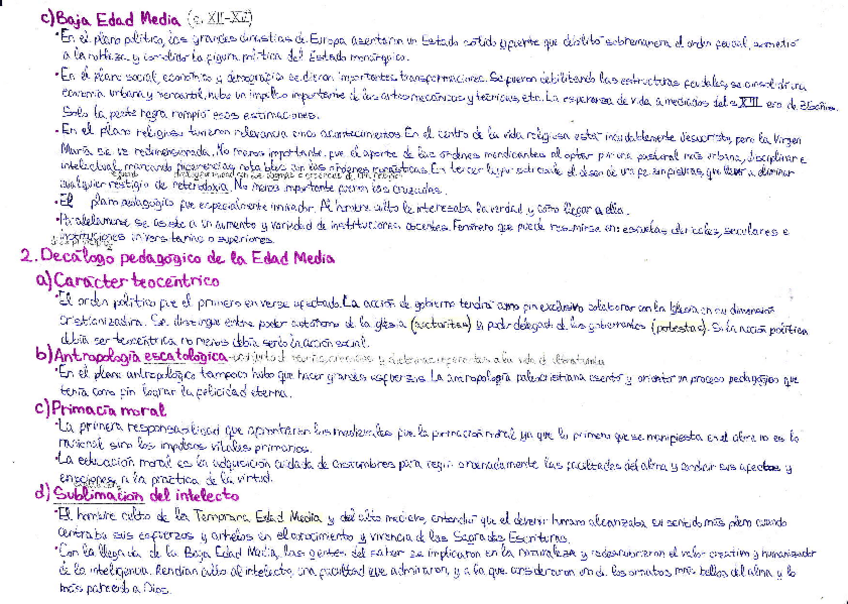 c) Baja Edad Media (s. XII-XV)
• En el plano político, las grandes dinastías de Europa asentaron un Estado sólido y fuerte que debilitó sobremanera el orden feudal, sometió
a la nobleza y consolidó la figura política del Estado monárquico.
• En el plano social, económico y demográfico se dieron importantes transformaciones. Se fueron debilitando las estructuras feudales, se consolidó una
economía urbana y mercantil, hubo un impulso importante de las artes mecánicas y técnicas, etc. La esperanza de vida a mediados del s. XIII era de años.
Solo la peste negra rompió esas estimaciones.
• En el plano religioso tuvieron relevancia acontecimientos. En el centro de la vida religiosa está indudablemente Jesucristo, pero la Virgen
María se ve redimensionada. No menos importante fue el aporte de las órdenes mendicantes al optar por una pastoral más urbana, disciplinar e
intelectual, marcando diferencias notables con las órdenes monásticas. En tercer lugar sobresale el deseo de una fe sin fisuras, que llevó a eliminar
cualquier vestigio de heterodoxia. No menos importante fueron las cruzadas.
• El plano pedagógico fue especialmente innovador. Al hombre culto le interesaba la verdad y cómo llegar a ella.
• Paralelamente se asiste a un aumento y variedad de instituciones docentes. Fenómeno que puede resumirse en: escuelas clericales, seculares e
instituciones universitarias o superiores.
2. Decálogo pedagógico de la Edad Media
a) Carácter teocéntrico
• El orden político fue el primero en verse afectado. La acción de gobierno tendrá como fin exclusivo colaborar con la Iglesia en su dimensión
cristianizadora. Se distingue entre poder autónomo de la Iglesia (auctoritas) y poder delegado de los gobernantes (potestas). Si la acción política
debía ser teocéntrica no menos debía serlo la acción social.
b) Antropología escatológica - conjunto de creencias y doctrinas referentes a la vida de ultratumba
• En el plano antropológico tampoco hubo que hacer grandes esfuerzos. La antropología paleocristiana asentó y orientó un proceso pedagógico que
tenía como fin lograr la felicidad eterna.
c) Primacía moral
• La primera responsabilidad que afrontaron los medievales fue la formación moral ya que lo primero que se manifiesta en el alma no es lo
racional sino los impulsos vitales primarios.
• La educación moral es la adquisición cuidada de costumbres para regir ordenadamente las facultades del alma y sus afectos y
emociones a la práctica de la virtud.
d) Sublimación del intelecto
• El hombre culto de la Temprana Edad Media y del alto medievo, entendió que el devenir humano alcanzaba su sentido más pleno cuando
centraba sus esfuerzos y anhelos en el conocimiento y vivencia de las Sagradas Escrituras.
• Con la llegada de la Baja Edad Media, las gentes del saber se implicaron en la naturaleza y redescubrieron el valor creativo y humanizador
de la inteligencia. Rendían culto al intelecto, una facultad que admiraron, y a la que consideraron uno de los ornatos más bellos del alma y lo
más parecido a Dios.